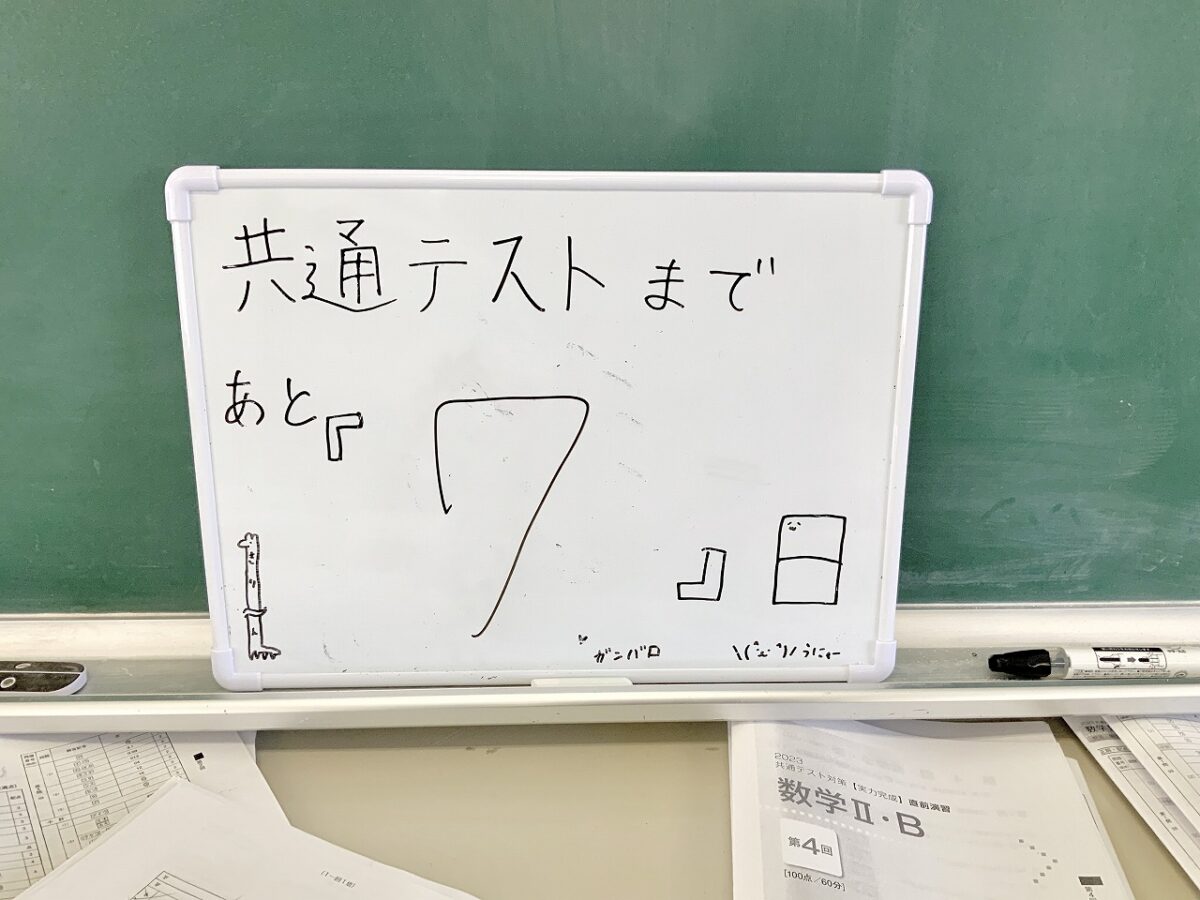 共通テストまで
あと『7』日
きりん
ガンバロ
\(^ω^)/うにゃー
2023
共通テスト対策【実力完成】直前演習
数学Ⅱ・B
第4回
[100点/60分]